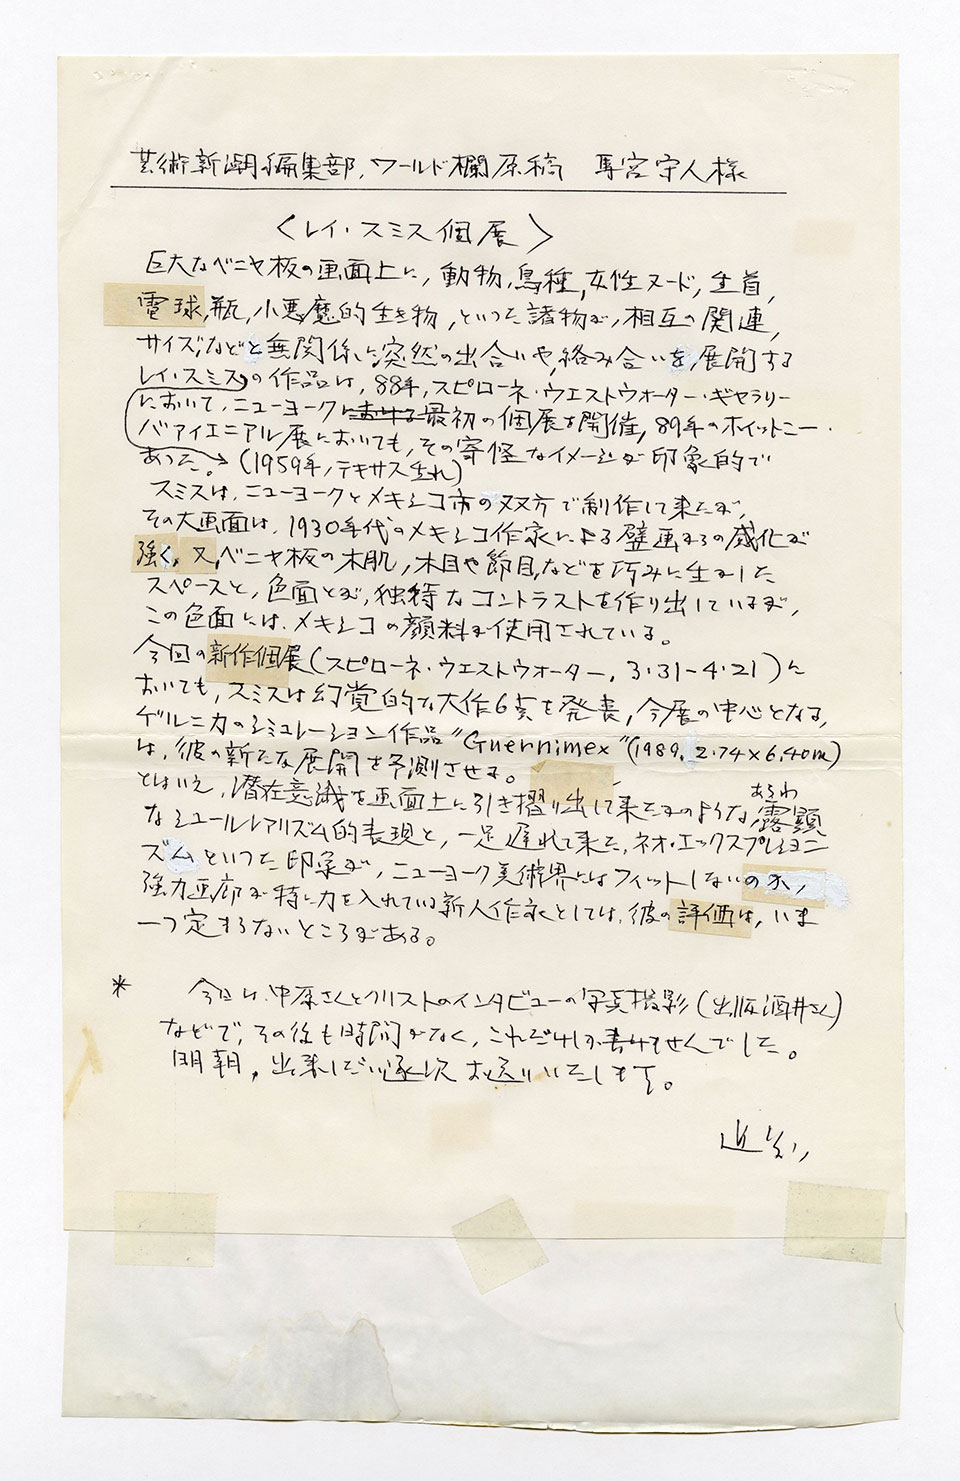 芸術新潮編集部,ワールド欄原稿 馬宮守人様
〈レイ・スミス個展〉
巨大なベニヤ板の画面上に,動物,鳥種,女性ヌード,生首,
電球,瓶,小悪魔的生き物,といった諸物が,相互の関連,
サイズ,などと無関係に突然の出合いや,絡み合いを,展開する
レイ・スミスの作品は,88年,スピローネ・ウエストウォーター・ギャラリー
において,ニューヨークにおける最初の個展を開催,89年のホイットニー・
バァイエニアル展においても,その奇怪なイメージが印象的で
あった。(1959年,テキサス生れ)
スミスは,ニューヨークとメキシコ市の双方で制作して来たが,
その大画面は,1930年代のメキシコ作家による壁画からの感化が
強く,又,ベニヤ板の木肌,木目や節目,などを巧みに生かした
スペースと,色面とが,独特なコントラストを作り出しているが,
この色面には,メキシコの顔料が使用されている。
今回の新作個展(スピローネ・ウエストウォーター,3・31-4・21)に
おいても,スミスは幻覚的な大作6点を発表,今展の中心となる,
ゲルニカのシミュレーション作品"Guernimex"(1989,2.74×6.40m)
は,彼の新たな展開を予測させる。
とはいえ,潜在意識を画面上に引き摺り出して来たかのような,露顕 あらわ
なシュールレアリズム的表現と,一足遅れて来た,ネオ・エックスプレショニ
ズムといった印象が,ニューヨーク美術界にはフィットしないのか,
強力画廊が特に力を入れている新人作家としては,彼の評価は,いま
一つ定まらないところがある。
* 今日は,中原さんとクリストのインタビューの写真撮影(出版酒井さん)
などで,その後も時間がなく,これだけしか書けませんでした。
明朝,出来しだい逐次お送りいたします。